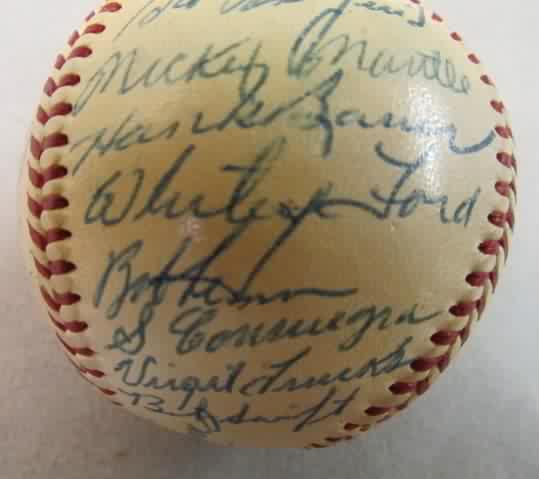 Mickey Mantle
Hank Bauer
Whitey Ford
Bob
S Consuegra
Virgil Trucks
Bob Swift